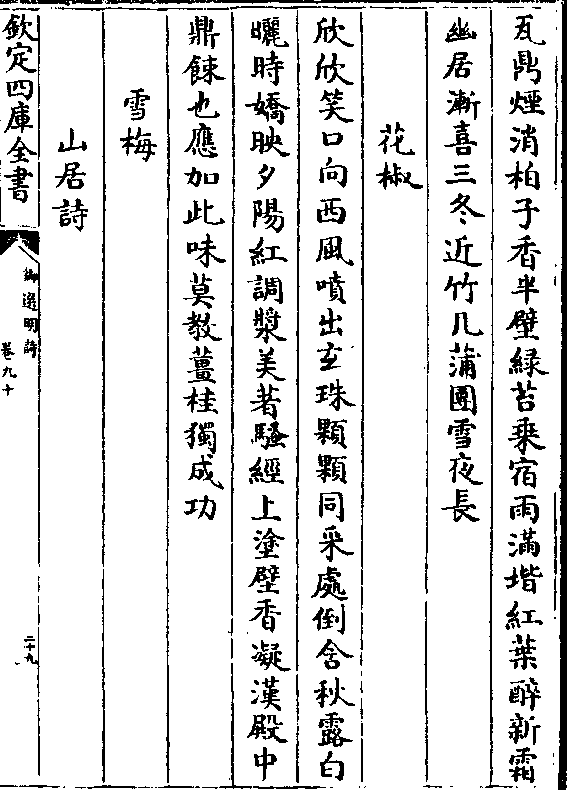 瓦鼎煙消柏子香半壁緑苔乗宿雨滿堦紅葉醉新霜
幽居漸喜三冬近竹几蒲團雪夜長
花椒
欣欣笑口向西風噴出玄珠顆顆同采處倒含秋露白
曬時嬌映夕陽紅調漿美著騷經上塗壁香凝漢殿中
鼎餗也應加此味莫教薑桂獨成功
雪梅
山居詩
欽定四庫全書
御選明詩
卷九十
二十九